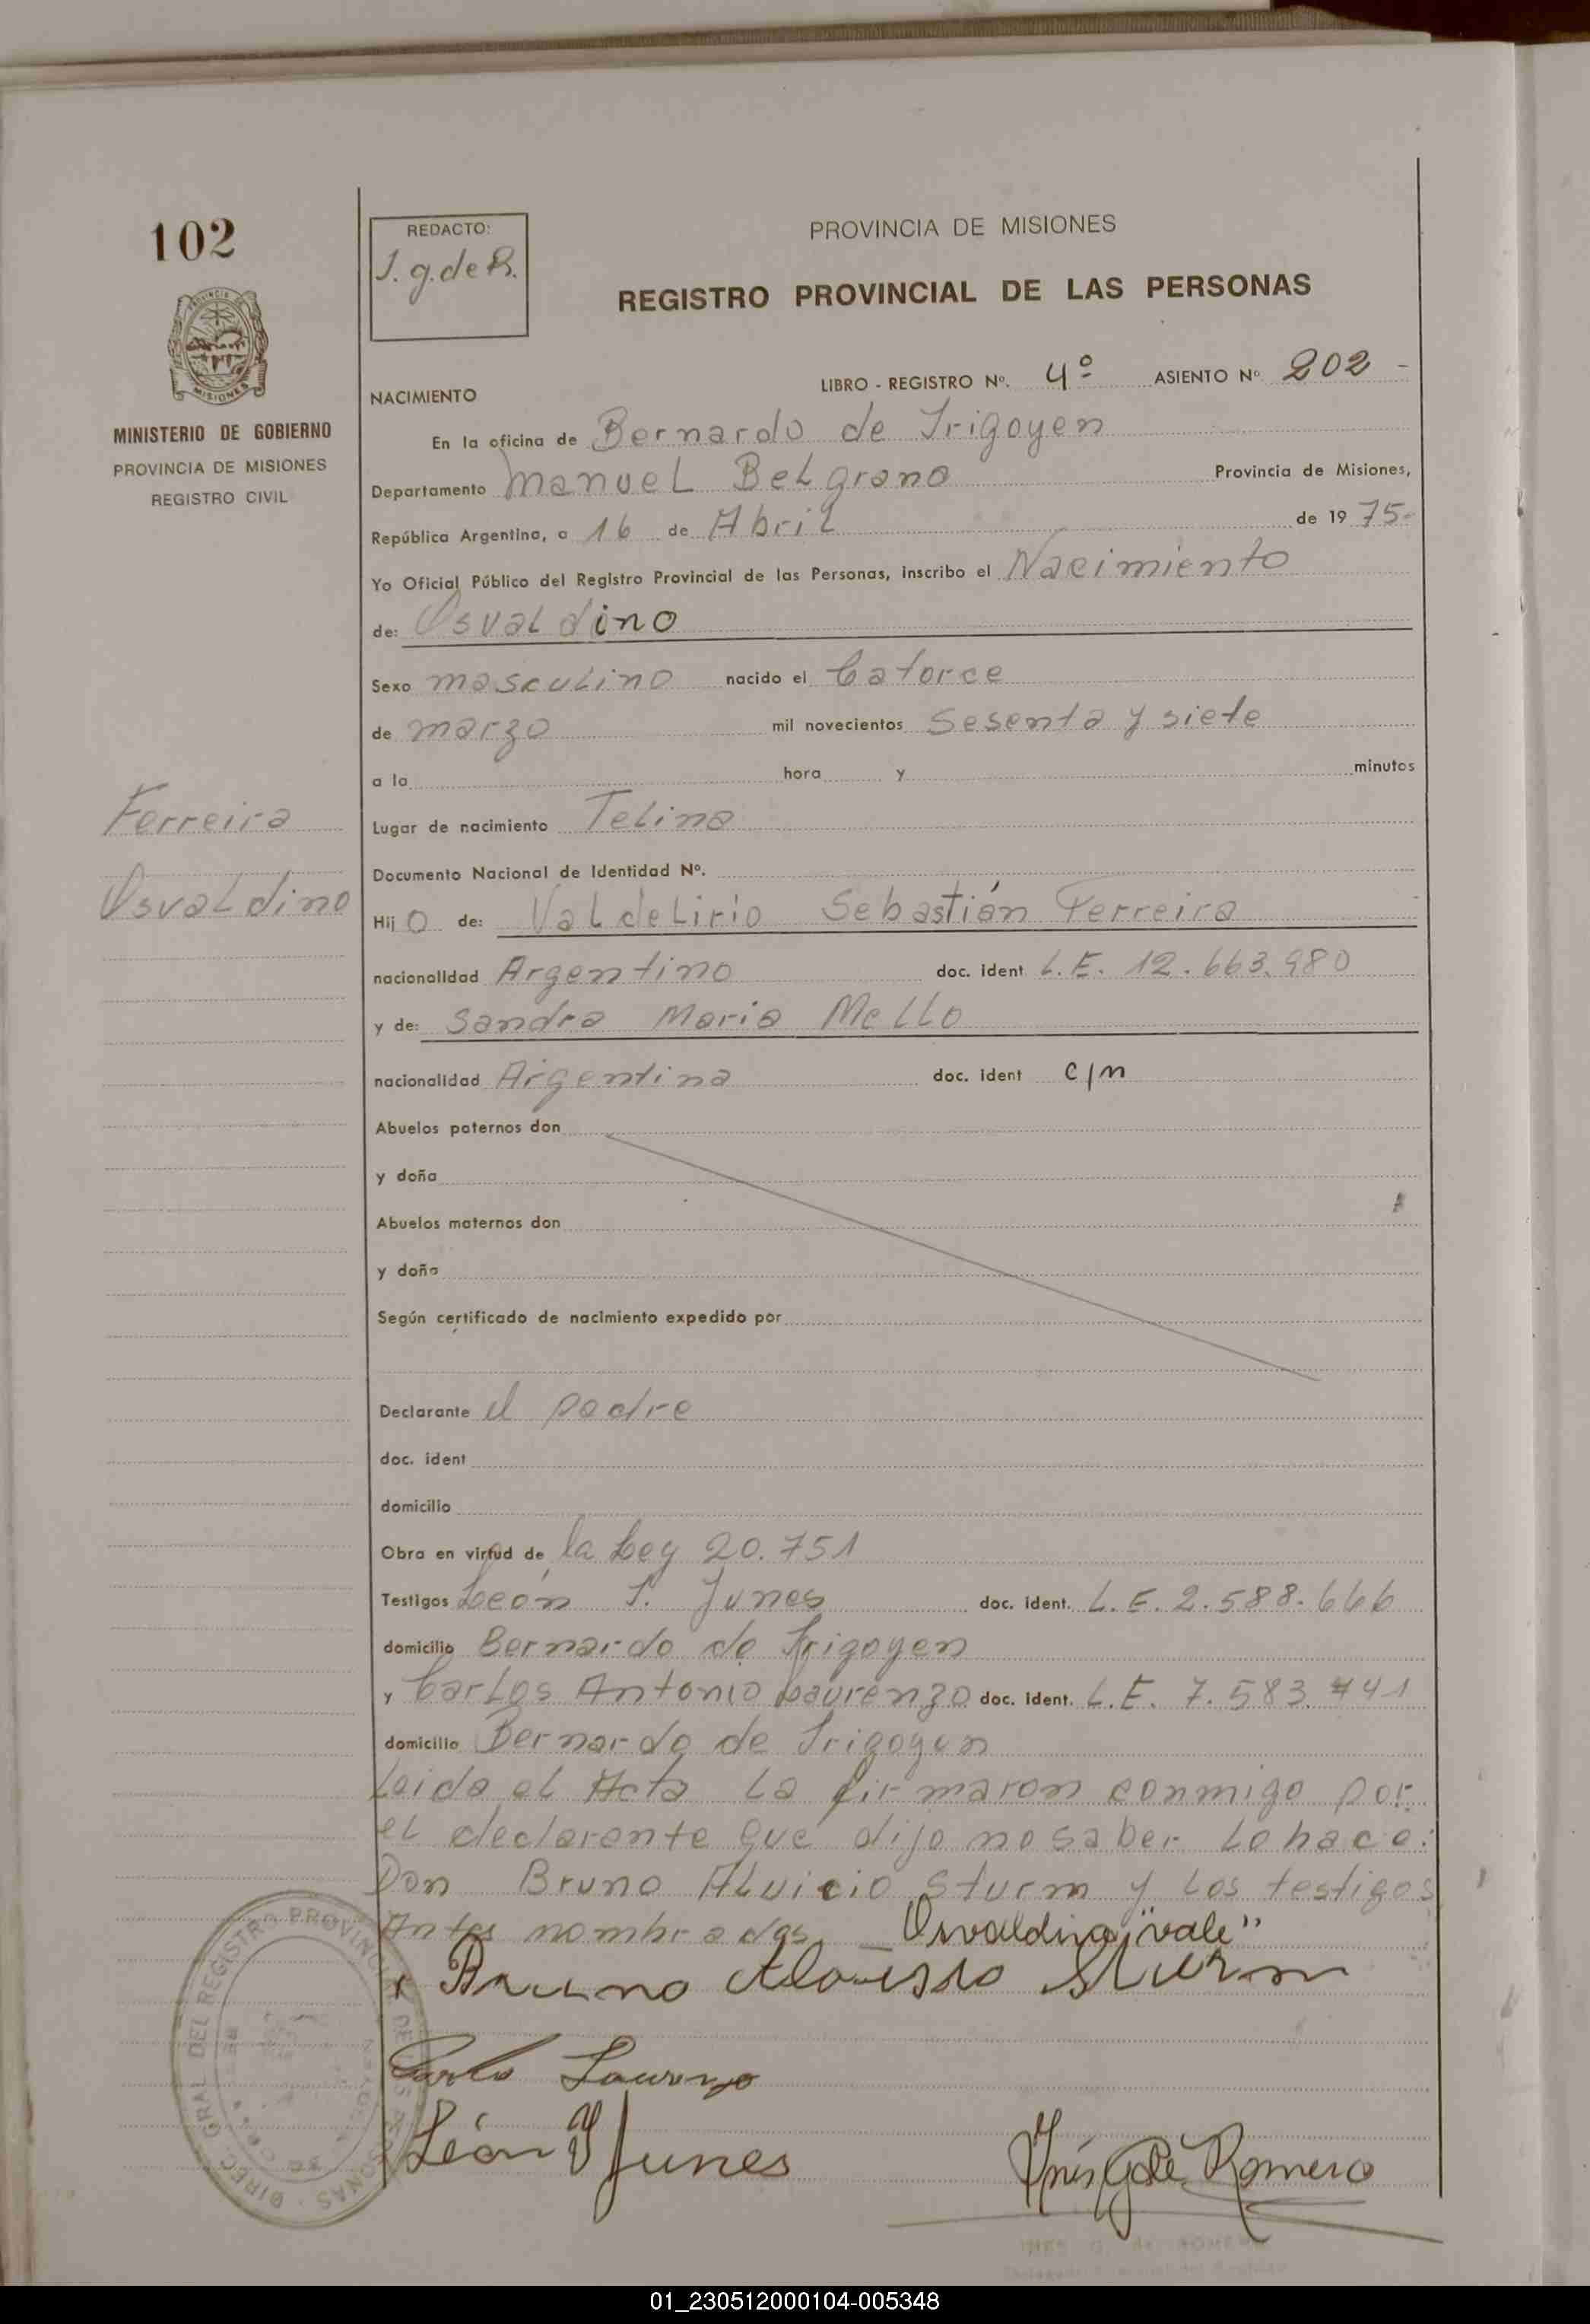 102
REDACTO:
I. g. de R.
PROVINCIA DE MISIONES
REGISTRO PROVINCIAL DE LAS PERSONAS
MINISTERIO DE GOBIERNO
PROVINCIA DE MISIONES
REGISTRO CIVIL
NACIMIENTO LIBRO - REGISTRO Nº. 4º ASIENTO Nº 202 -
En la oficina de Bernardo de Irigoyen
Departamento Manuel Belgrano Provincia de Misiones,
República Argentina, a 16 de Abril de 19 75-
Yo Oficial Público del Registro Provincial de las Personas, inscribo el Nacimiento
de: Osvaldino
Sexo masculino nacido el Catorce
de marzo mil novecientos Sesenta y siete
a la hora y minutos
Ferreira
Osvaldino
Lugar de nacimiento Telina
Documento Nacional de Identidad Nº.
Hij o de: Valdelirio Sebastián Ferreira
nacionalidad Argentino doc. ident L.E. 12.663.980
y de: Sandra Maria Mello
nacionalidad Argentina doc. ident c/n
Abuelos paternos don
y doña
Abuelos maternos don
y doña
Según certificado de nacimiento expedido por
Declarante el padre
doc. ident
domicilio
Obra en virtud de la Ley 20.751
Testigos León I. Junes doc. ident. L.E. 2.588.666
domicilio Bernardo de Irigoyen
y Carlos Antonio Laurenzo doc. ident. L.E. 7.583.741
domicilio Bernardo de Irigoyen
Leida el Acta la firmaron conmigo por
el declarante que dijo no saber lo hace:
Don Bruno Aluicio Sturm y los testigos
Antes nombrados. _ Osvaldino, "vale"
Bruno Aloisio Sturm
Carlos Laurenzo
León Y Junes
Inés G. de Romero
DIREC. GRAL. DEL REGISTRO PROVINCIAL DE LAS PERSONAS
01_230512000104-005348